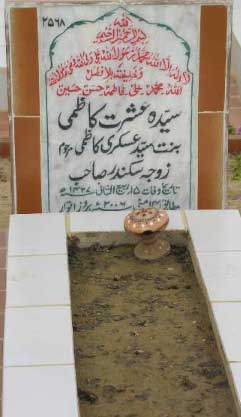 ۲۵۲۸
اللہ
بسم اللہ الرحمٰن الرحیم
لا الہ الا اللہ محمد رسول اللہ علی ولی اللہ وصی رسول اللہ
وخلیفتہ بلا فصل
اللہ محمد علی فاطمہ حسن حسین
سیدہ عشرت کاظمی
بنت سید عسکری کاظمی مرحوم
زوجہ سکندر صاحب
تاریخ وفات ۱۵ ربیع الثانی ۱۴۲۷ھ
مطابق ۱۴ مئی ۲۰۰۶ء بروز اتوار